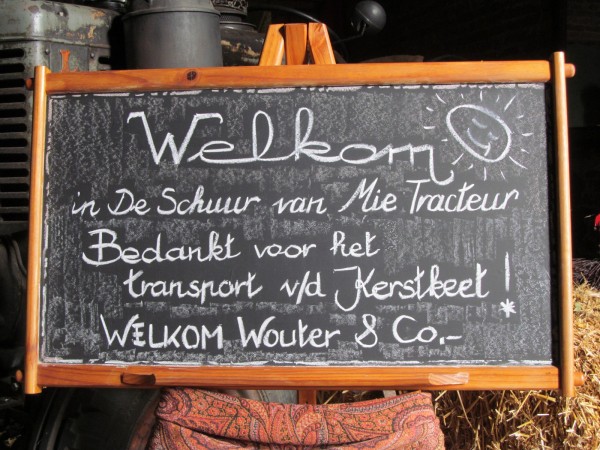 Welkom
in De Schuur van Mie Tracteur
Bedankt voor het
transport v/d Kerstkeet !
WELKOM Wouter & Co.-